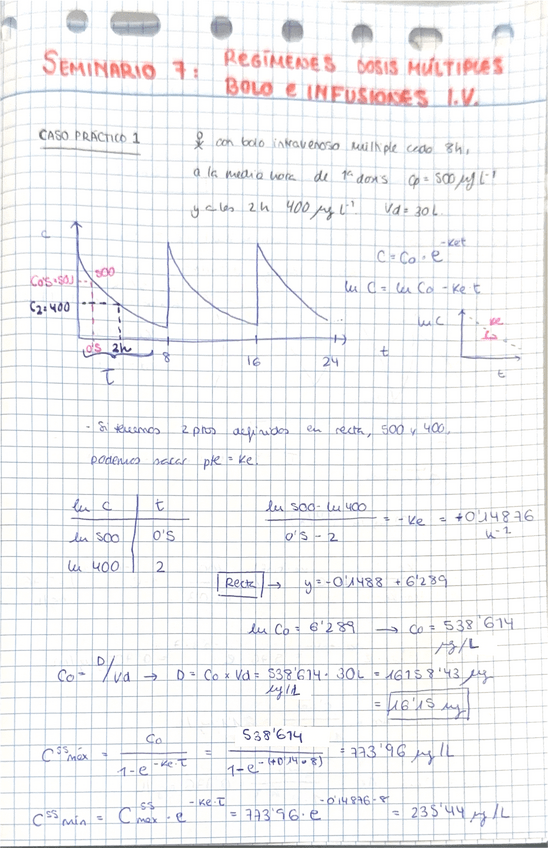 SEMINARIO 7: REGÍMENES DOSIS MÚLTIPLES
BOLO e INFUSIONES I.V.
CASO PRÁCTICO 1
con bolo intravenoso múltiple cada 8h,
a la media hora de 1ª dosis Cp = 500 µg L⁻¹
y a las 2h 400 µg L⁻¹. Vd = 30L.
C
C0'5=500
500
C2=400
0'5 2h
8
16
24
t
τ
C = C0 · e^-ket
ln C = ln C0 - ke·t
ln C
ke
t
- Si tenemos 2 ptos definidos en recta, 500 y 400,
podemos sacar pte = ke.
ln C t
ln 500 0'5
ln 400 2
ln 500 - ln 400 / 0'5 - 2 = -ke = +0'14876 h⁻¹
Recta → y = -0'1488 + 6'289
ln C0 = 6'289 → C0 = 538'614 µg/L
C0 = D/Vd → D = C0 x Vd = 538'614 µg/L · 30L = 16158'43 µg
= 16'15 µg
C^ss máx = C0 / 1-e^-ke·τ = 538'614 / 1-e^-(+0'14·8) = 773'96 µg/L
C^ss mín = C^ss máx · e^-ke·τ = 773'96 · e^-0'14876·8 = 235'44 µg/L